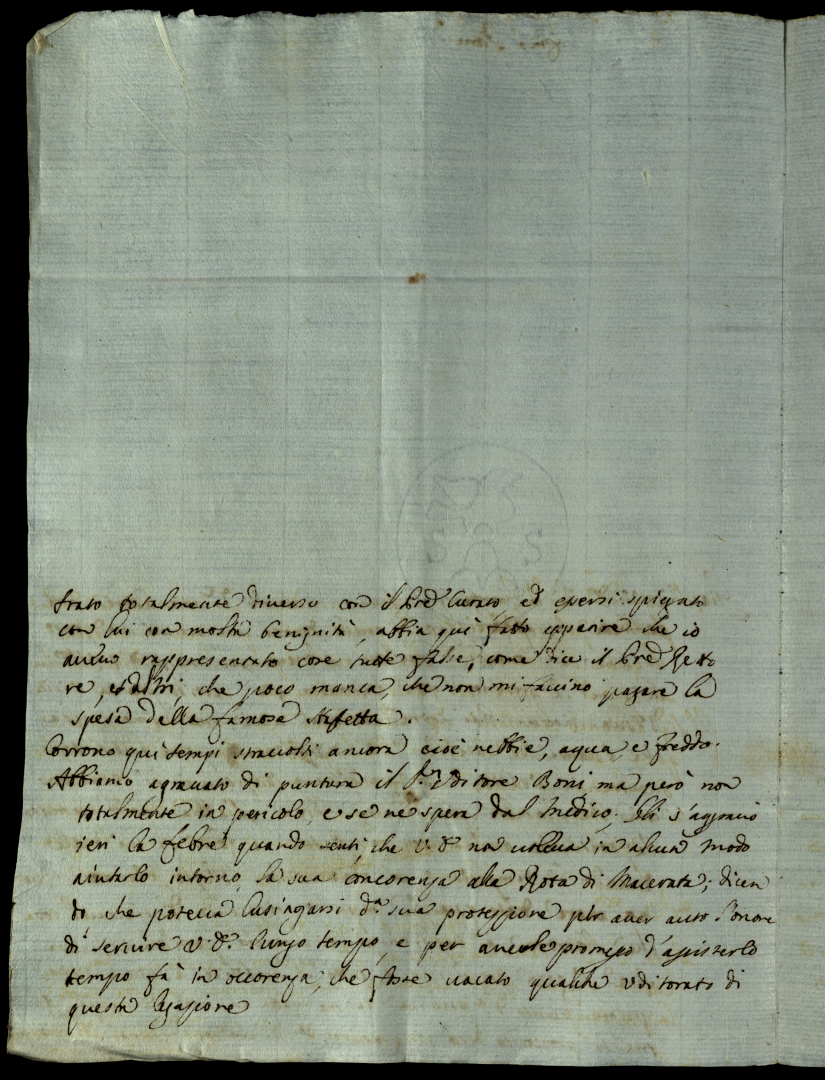 strato totalmente diverso con il Pred.e Curato, ed essersi spiegato
con lui con molta benignità, abbia quì fatto apparire che io
avessi rappresentato cose tutte false, come dice il Pred.e Retto
re, ed altri, che poco manca, che non mi faccino pagare la
spesa della famosa staffetta.
Corrono quì tempi stravolti ancora cioè nebbie, aqua, e freddo.
Abbiamo agravato di puntura il S.r Uditore Boni ma però non
totalmente in pericolo, e se ne spera dal Medico. Gli s'aggravò
ieri la febre quando sentì, che V. E. non voleva in alcun modo
aiutarlo intorno la sua concorenza alla Rota di Macerata; dicen
do che poteva lusingarsi d.a sua protezzione per aver auto l'onore
di servire V. E. lungo tempo, e per averle promesso d'assisterlo
tempo fà in occorenza, che fosse vacato qualche uditorato di
questa Legazione